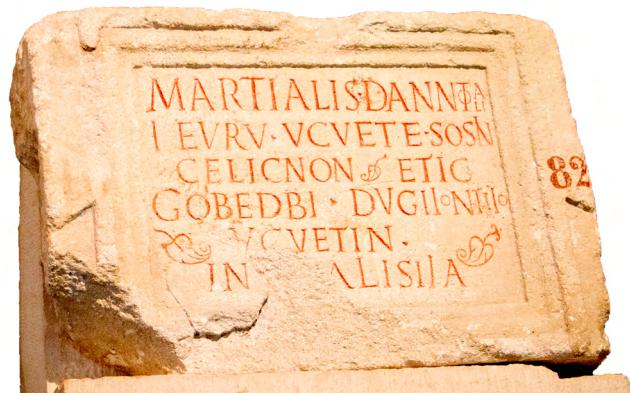 MARTIALIS·DANNOTALI
IEVRV·VCVETE·SOSIN
CELICNON ETIC
82
GOBEDBI·DVGIIONTIIO
VCVETIN·
IN ALISIIA